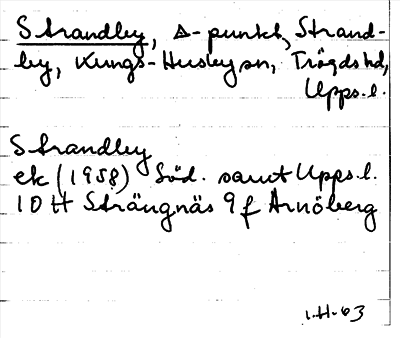 Strandby, Δ-punkt, Strand-
by, Kungs-Husbysn, Trögds hd,
Upps.l.
Strandby
ek (1958) Söd. samt Upps.l.
10 H Strängnäs 9 f Arnöberg
1.H.63